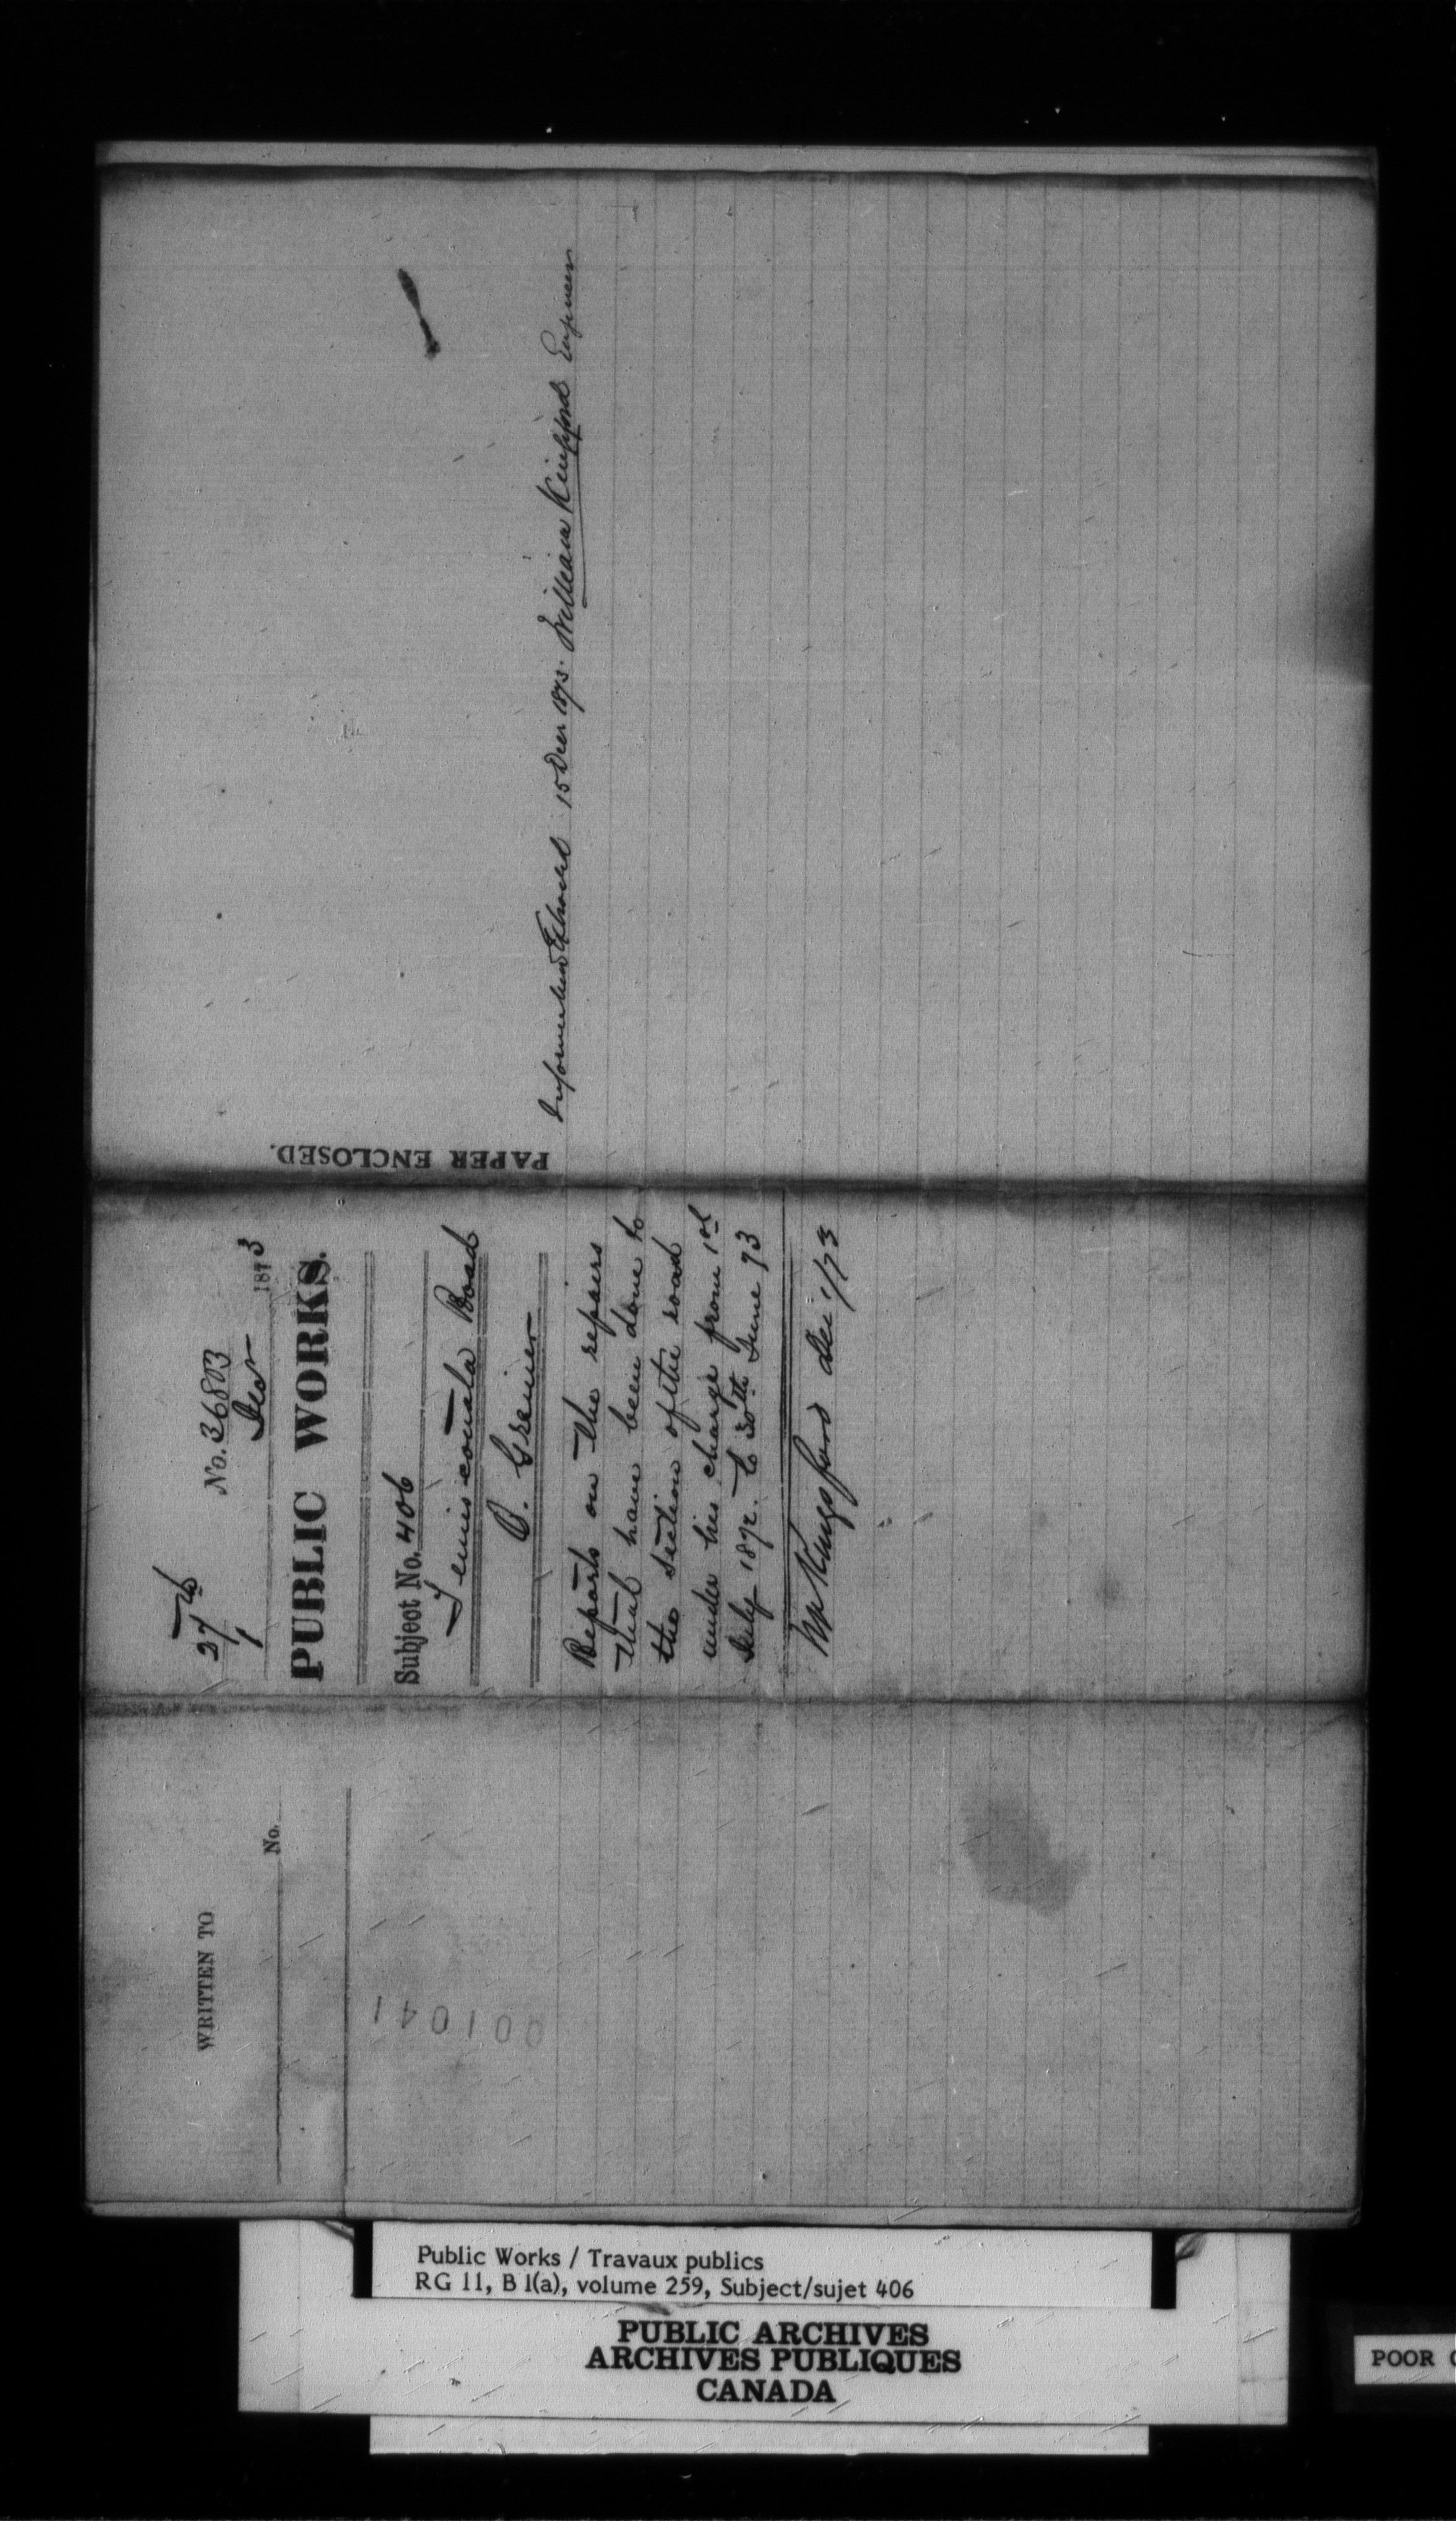 WRITTEN TO
No.
001041
No. 36803
27th
1873
PUBLIC WORKS.
Subject No. 406
Temiscouata Road
B. Grenier
Reports on the repairs
that have been done to
the section of the road
under his charge from 1st
July 1872. to 30th June 73
Wm Kingsford Dec 1/73
PAPER ENCLOSED.
Information Extracted 15 Decr 1873. William Kingsford Engineer
Public Works / Travaux publics
RG 11, B 1(a), volume 259, Subject/sujet 406
PUBLIC ARCHIVES
ARCHIVES PUBLIQUES
CANADA
POOR